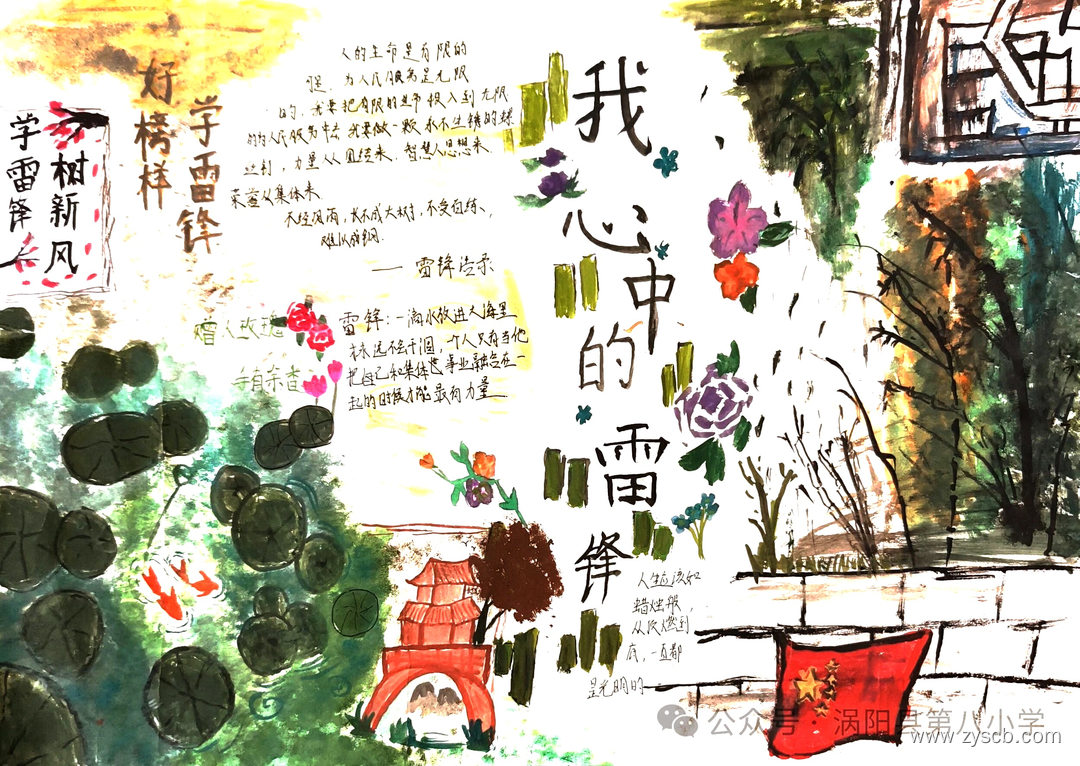 我心中的雷锋
好榜样
学雷锋
学雷锋
树新风
人的生命是有限的
但，为人民服务是无限
的，我要把有限的生命投入到无限
的为人民服务中去 我要做一颗永不生锈的螺
丝钉，力量从团结来，智慧从思想来、
荣誉从集体来
不经风雨，长不成大树，不受百炼、，
难以成钢
—— 雷锋语录
赠人玫瑰
手有余香
雷锋：一滴水放进大海里
永远不会干涸，个人只有当他
把自己和集体事业融合在一
起的时候才能最有力量
人生应该如
蜡烛般
从顶燃到
底，一直都
是光明的
公众号·涡阳县第八小学
www.zyscb.com